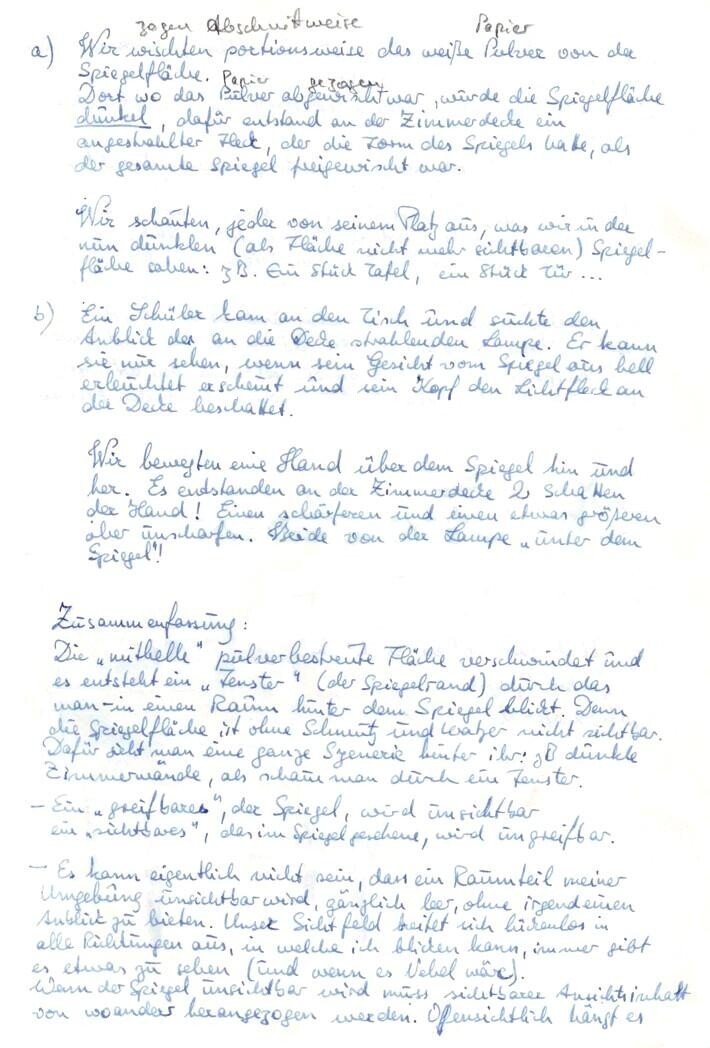 zogen Abschnittweise Papier
a) Wir wischten portionsweise das weiße Pulver von der
Spiegelfläche. Papier gezogen
Dort wo das Pulver abgewischt war, wurde die Spiegelfläche
dunkel, dafür entstand an der Zimmerdecke ein
angestrahlter Fleck, der die Form des Spiegels hatte, als
der gesamte Spiegel freigewischt war.
Wir schauten, jeder von seinem Platz aus, was wir in der
nun dunklen (als Fläche nicht mehr sichtbaren) Spiegel-
fläche sahen: zB. Ein Stück Tafel, ein Stück Tür ...
b) Ein Schüler kam an den Tisch und suchte den
Anblick der an die Decke strahlenden Lampe. Er kann
sie nur sehen, wenn sein Gesicht vom Spiegel aus hell
erleuchtet erscheint und sein Kopf den Lichtfleck an
der Decke beschattet.
Wir bewegten eine Hand über dem Spiegel hin und
her. Es entstanden an der Zimmerdecke 2 Schatten
der Hand! Einen schärferen und einen etwas größeren
aber unscharfen. Beide von der Lampe „unter dem
Spiegel"!
Zusammenfassung:
Die „mithelle" pulverbestreute Fläche verschwindet und
es entsteht ein „Fenster" (der Spiegelrand) durch das
man – in einen Raum hinter dem Spiegel blickt. Denn
die Spiegelfläche ist ohne Schmutz und Kratzer nicht sichtbar.
Dafür sieht man eine ganze Szenerie hinter ihr: zB dunkle
Zimmerwände, als schaue man durch ein Fenster.
– Ein „greifbares", der Spiegel, wird unsichtbar
ein „sichtbares", das im Spiegel gesehene, wird ungreifbar.
– Es kann eigentlich nicht sein, dass ein Raumteil meiner
Umgebung unsichtbar wird, gänzlich leer, ohne irgend einen
Anblick zu bieten. Unser Sichtfeld breitet sich lückenlos in
alle Richtungen aus, in welche ich blicken kann, immer gibt
es etwas zu sehen (und wenn es Nebel wäre).
Wenn der Spiegel unsichtbar wird muss sichtbarer Ansichtsinhalt
von woanders herangezogen werden. Offensichtlich hängt es